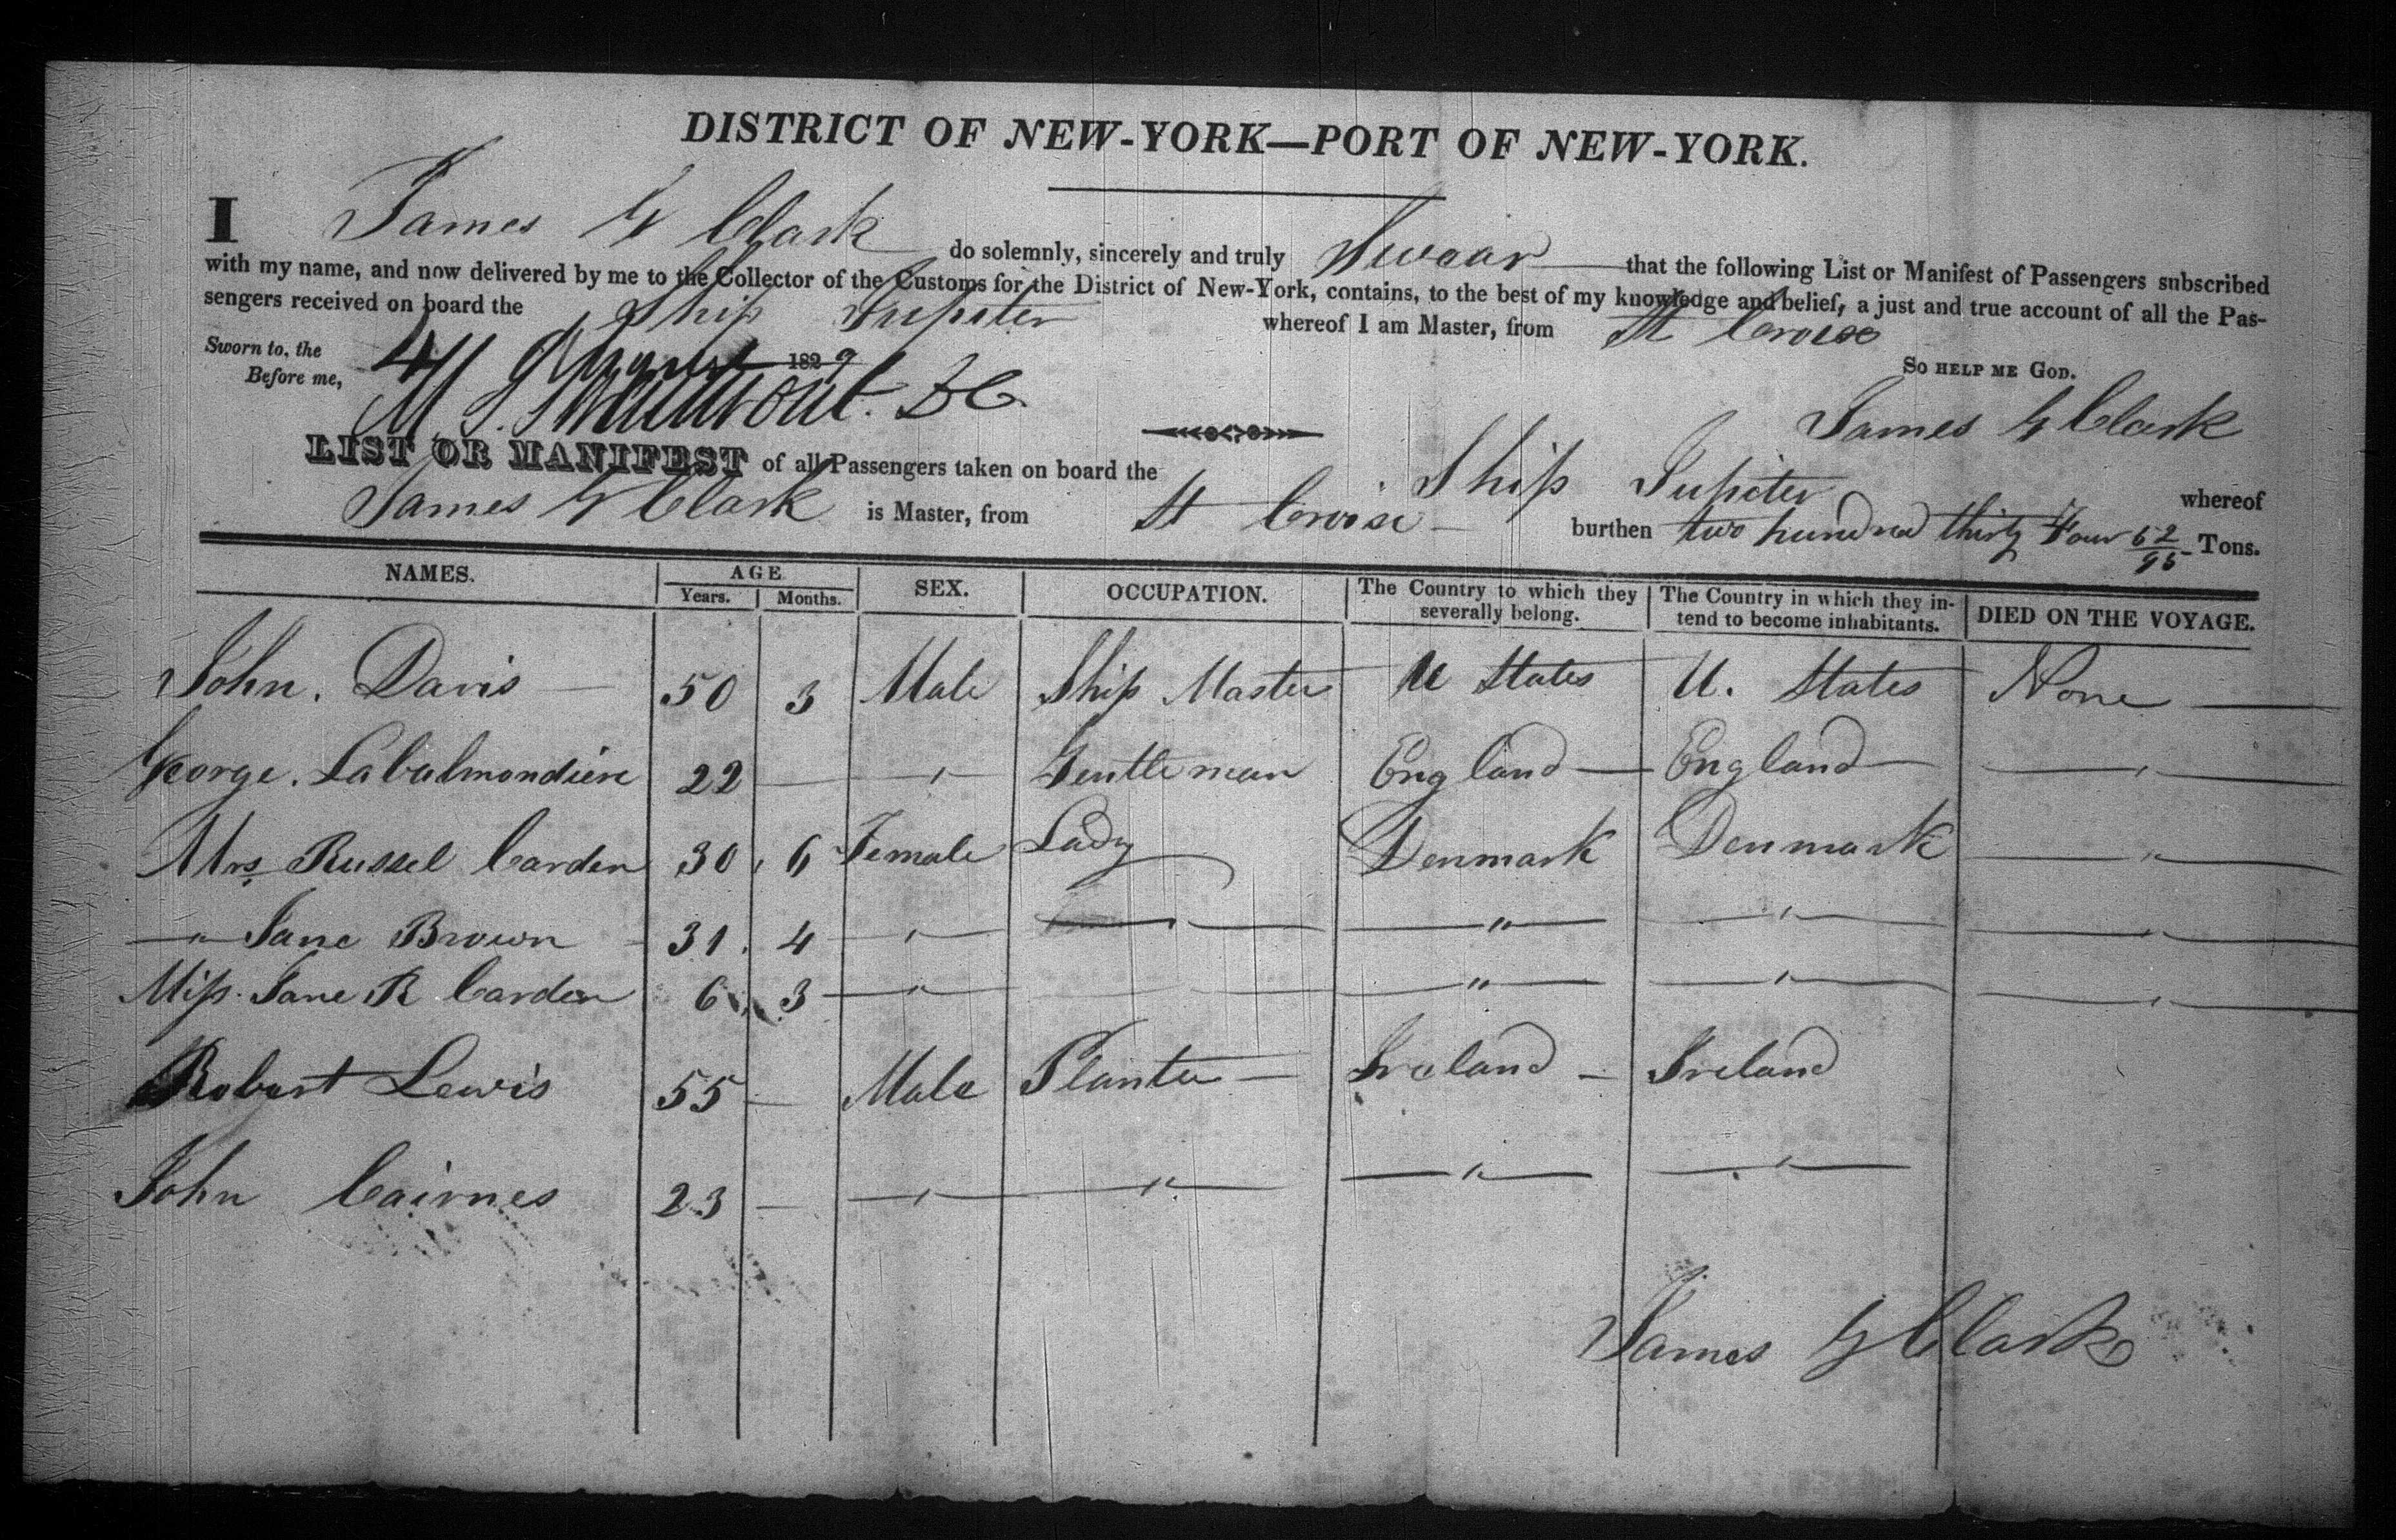 DISTRICT OF NEW-YORK—PORT OF NEW-YORK.
I James G Clark do solemnly, sincerely and truly Swear that the following List or Manifest of Passengers subscribed
with my name, and now delivered by me to the Collector of the Customs for the District of New-York, contains, to the best of my knowledge and belief, a just and true account of all the Pas-
sengers received on board the Ship Jupiter whereof I am Master, from St Croix
Sworn to, the 4 August 1829 So HELP ME GOD.
Before me, DC James G Clark
LIST OR MANIFEST of all Passengers taken on board the Ship Jupiter whereof
James G Clark is Master, from St Croix burthen two hundred thirty Four 62/95 Tons.
NAMES. AGE Years. Months. SEX. OCCUPATION. The Country to which they severally belong. The Country in which they in-tend to become inhabitants. DIED ON THE VOYAGE.
John. Davis — 50 3 Male Ship Master U States U. States None —
George. Labalmondiere 22 — " Gentleman England — England — "
Mrs Russel Carden 30, 6 Female Lady Denmark Denmark "
" Jane Brown 31. 4 " — " " "
Miss. Jane R Carden 6 3 " — " " "
Robert Lewis 55 — Male Planter — Ireland — Ireland
John Cairnes 23 — " " " "
James G Clark